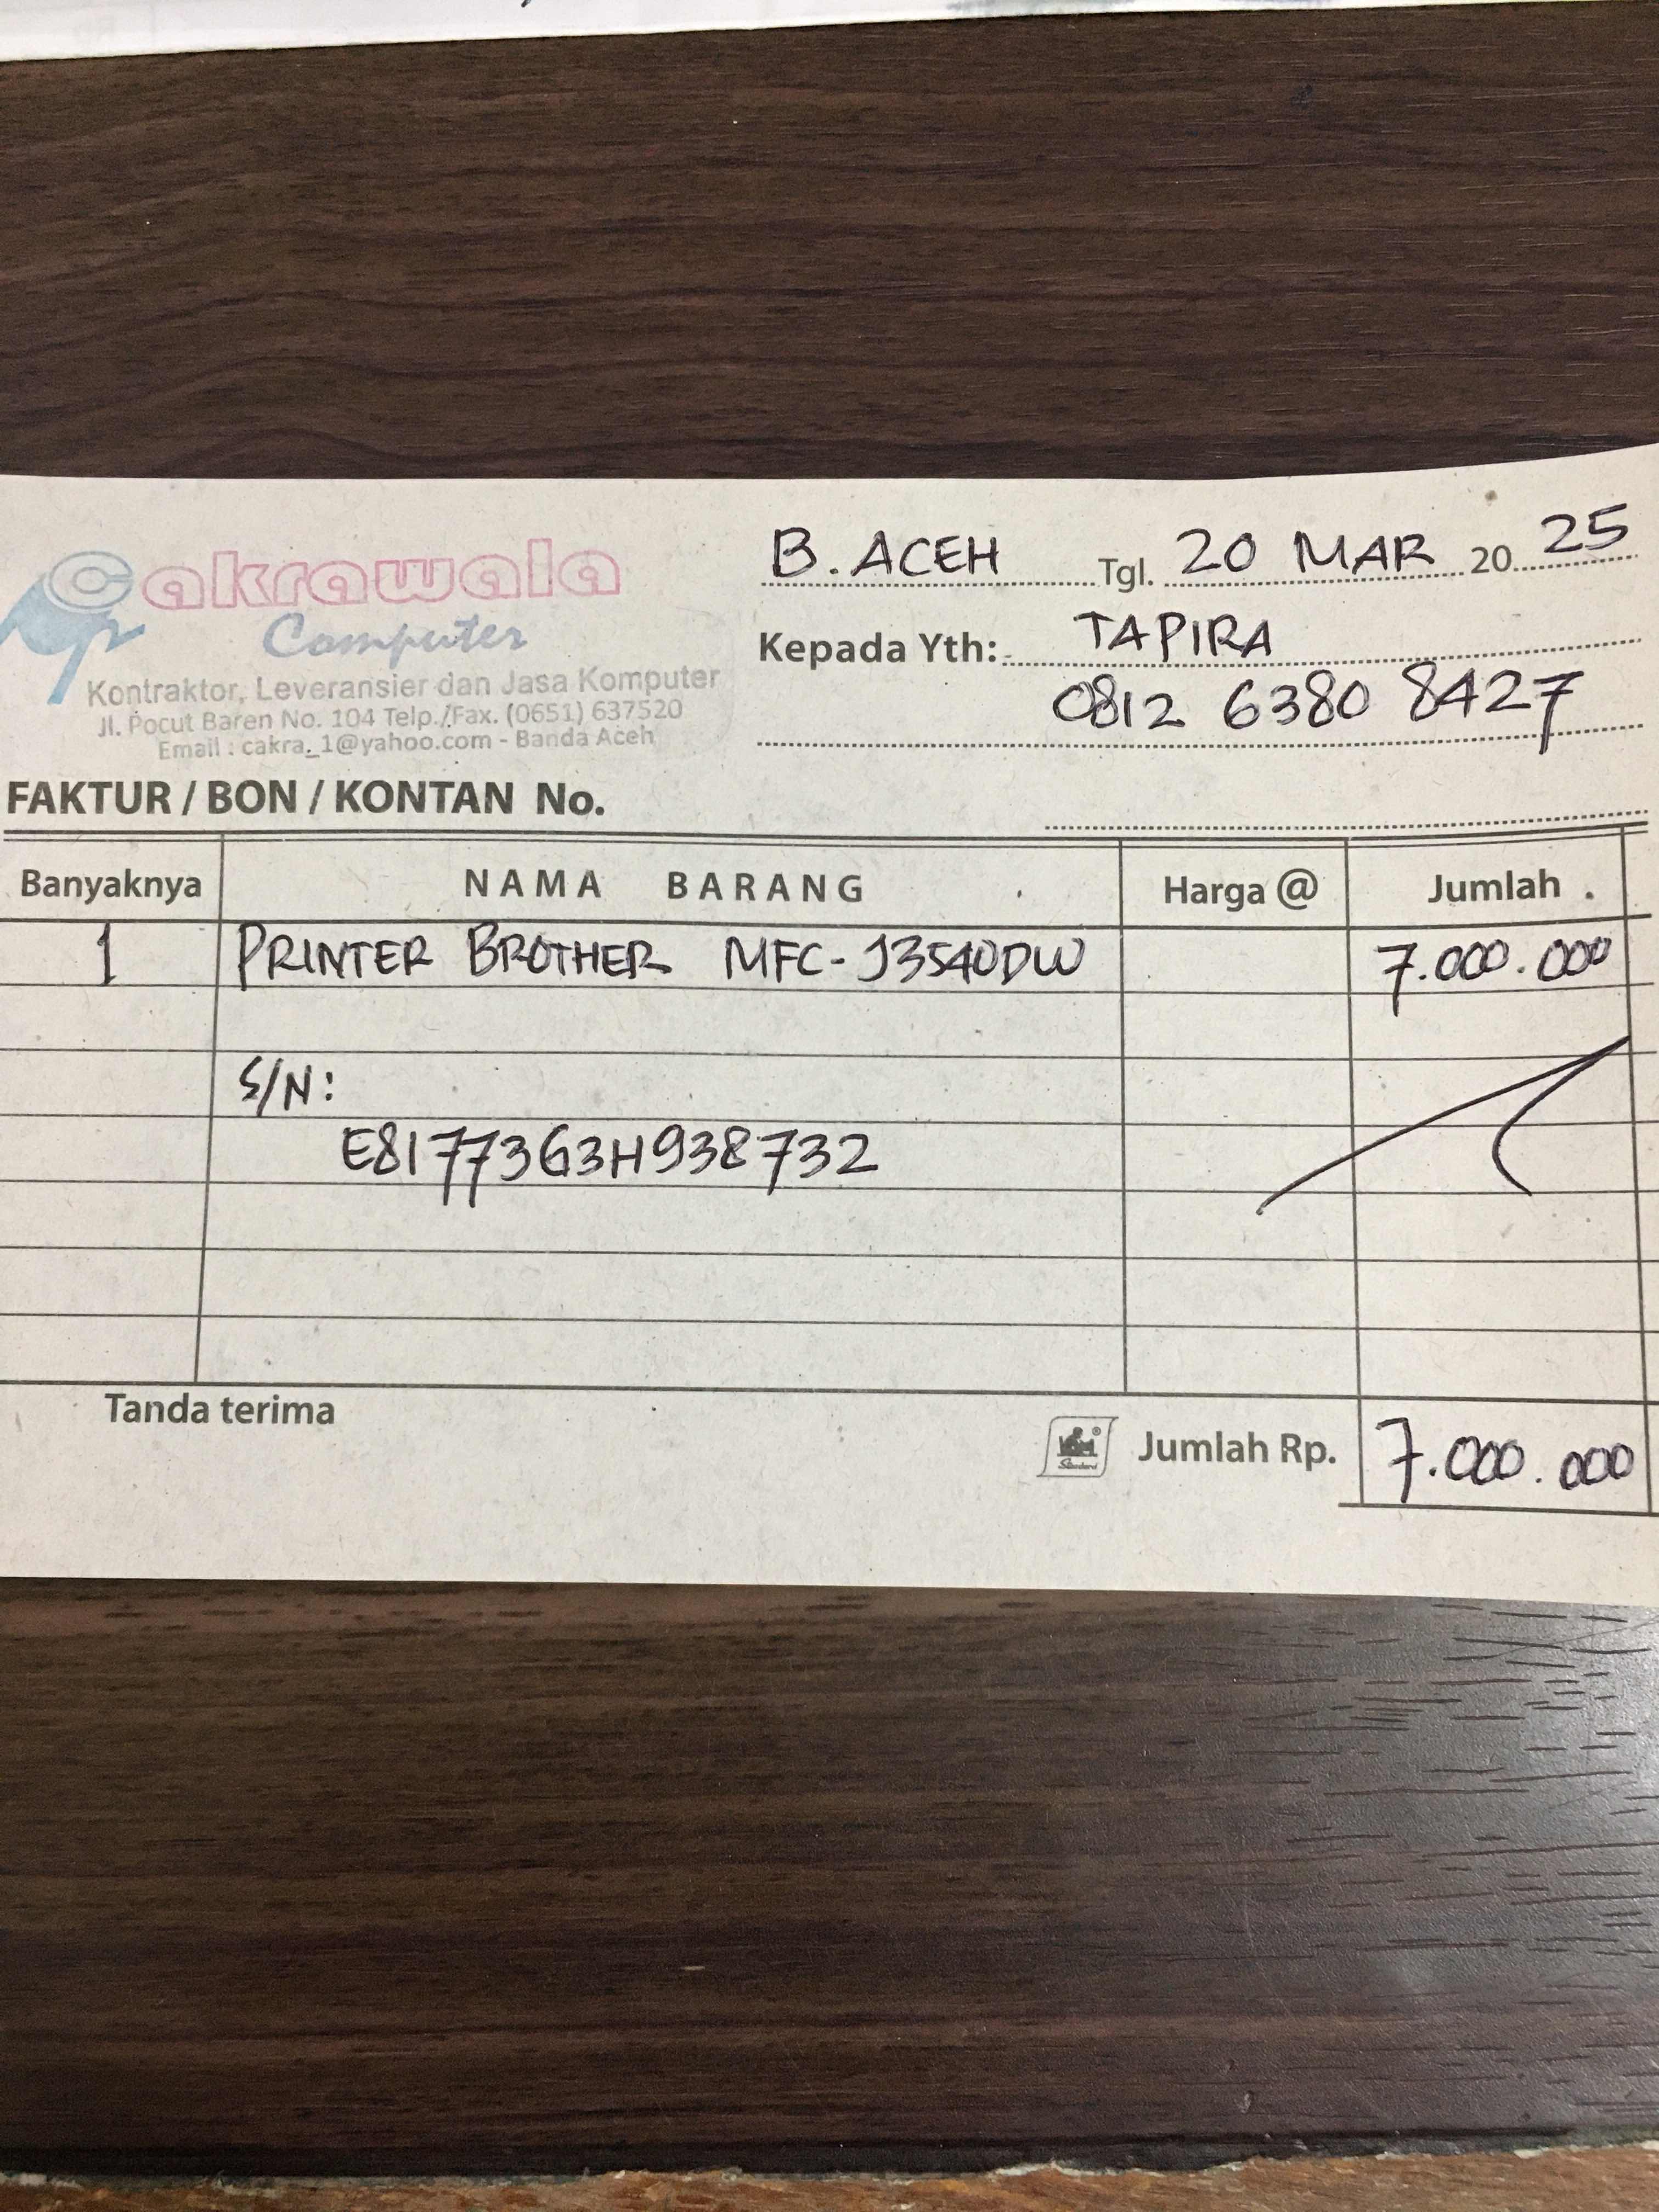 B. ACEH Tgl. 20 MAR 2025
Cakrawala
Computer
Kontraktor, Leveransier dan Jasa Komputer
Jl. Pocut Baren No. 104 Telp./Fax. (0651) 637520
Email : cakra_1@yahoo.com - Banda Aceh
Kepada Yth: TAPIRA
0812 6380 8427
FAKTUR / BON / KONTAN No.
Banyaknya NAMA BARANG Harga @ Jumlah
1 PRINTER BROTHER MFC-J3540DW 7.000.000
S/N:
E81773G3H938732
Tanda terima
Jumlah Rp. 7.000.000